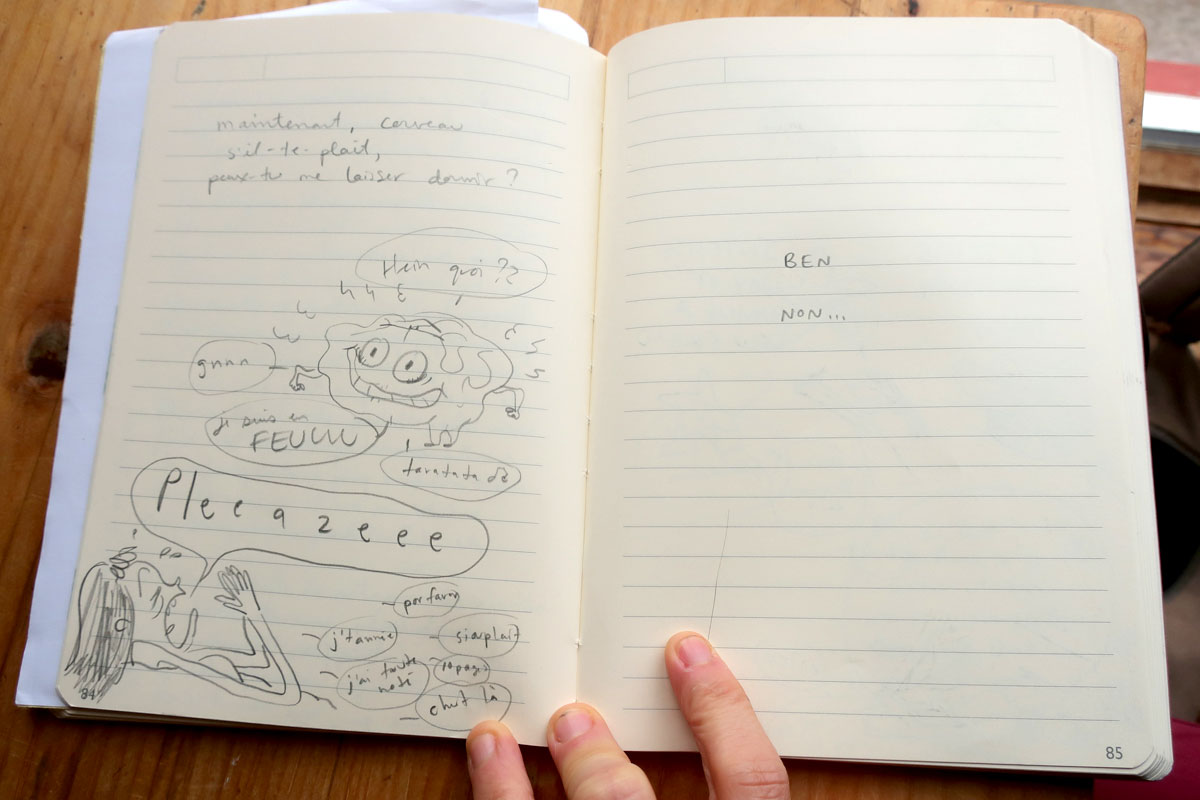 maintenant, cerveau
s'il-te-plait,
peux-tu me laisser dormir ?
Hein quoi ??
gnnn
je suis en
FEUUU
taratata
Pleeazeee
por favor
j't'aime
siouplait
j'ai toute
noté
10 pages
chut là
84
BEN
NON...
85